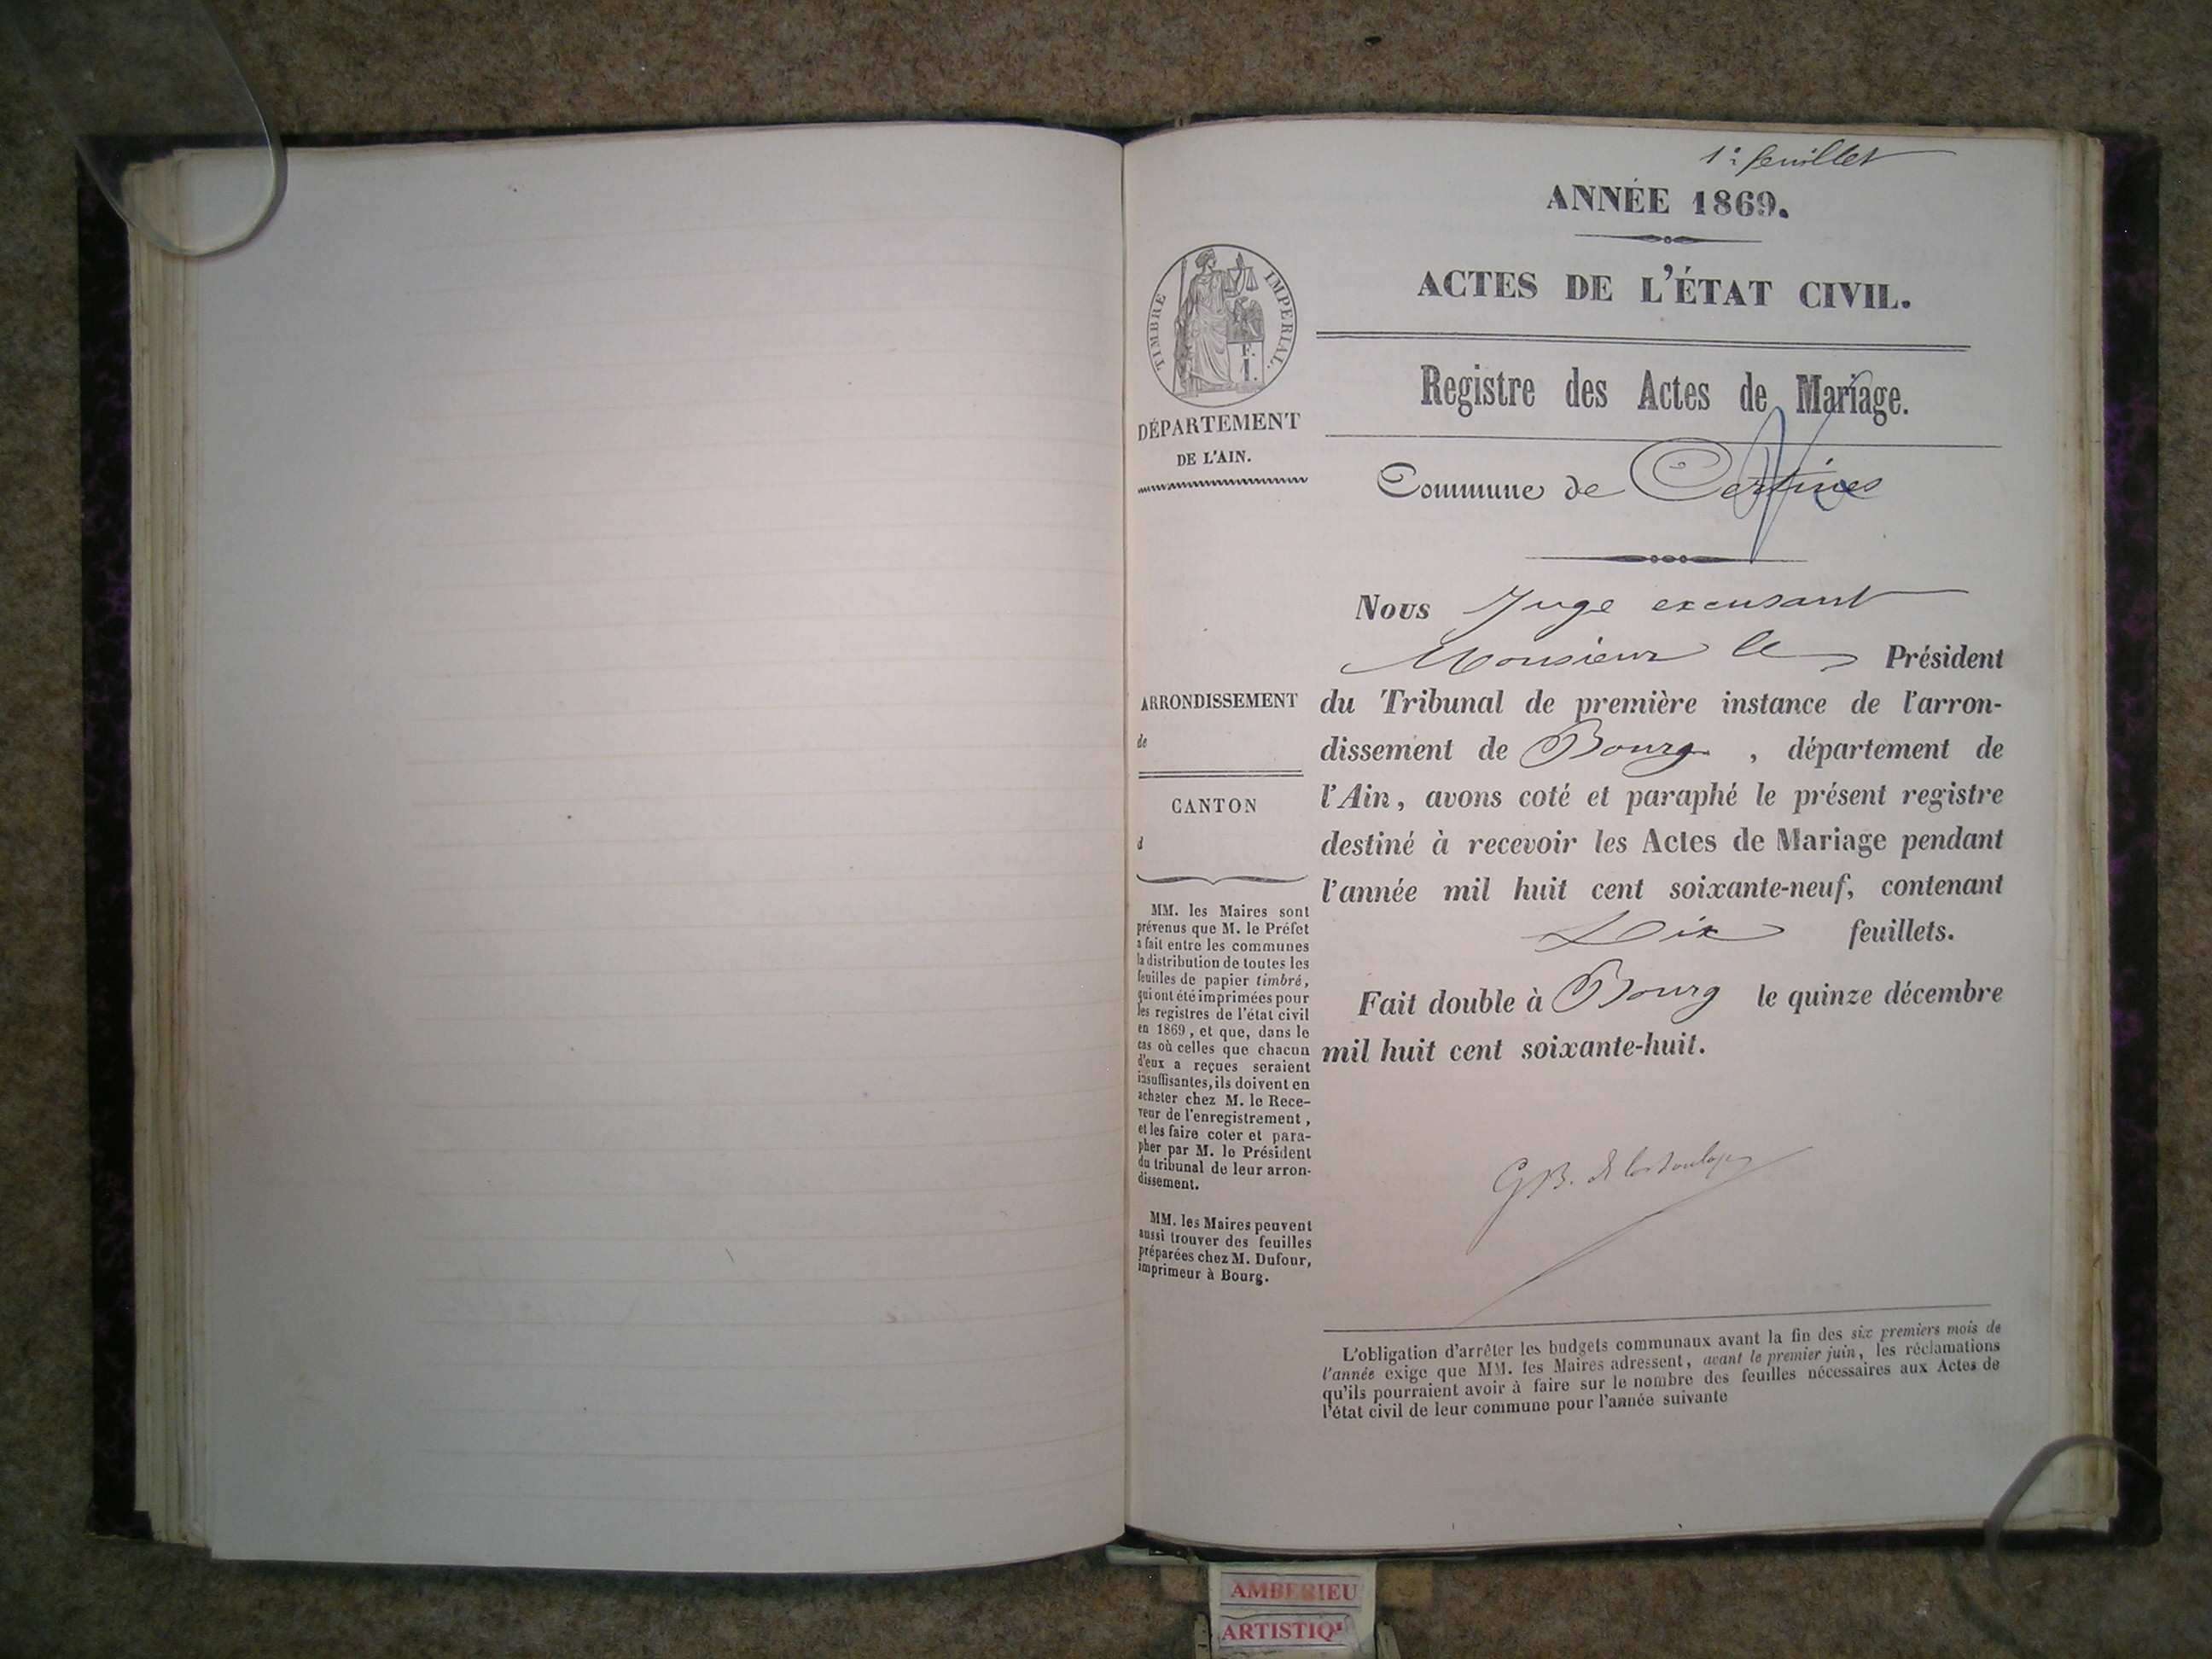 1er feuillet
ANNÉE 1869.
ACTES DE L'ÉTAT CIVIL.
Registre des Actes de Mariage.
Commune de Certines
TIMBRE IMPERIAL.
F.
I.
DÉPARTEMENT
DE L'AIN.
ARRONDISSEMENT
de
CANTON
d
MM. les Maires sont
prévenus que M. le Préfet
a fait entre les communes
la distribution de toutes les
feuilles de papier timbré,
qui ont été imprimées pour
les registres de l'état civil
en 1869, et que, dans le
cas où celles que chacun
d'eux a reçues seraient
insuffisantes, ils doivent en
acheter chez M. le Rece-
veur de l'enregistrement,
et les faire coter et para-
pher par M. le Président
du tribunal de leur arron-
dissement.
MM. les Maires peuvent
aussi trouver des feuilles
préparées chez M. Dufour,
imprimeur à Bourg.
Nous Juge excusant
Monsieur le Président
du Tribunal de première instance de l'arron-
dissement de Bourg, département de
l'Ain, avons coté et paraphé le présent registre
destiné à recevoir les Actes de Mariage pendant
l'année mil huit cent soixante-neuf, contenant
Dix feuillets.
Fait double à Bourg le quinze décembre
mil huit cent soixante-huit.
G B. de la
L'obligation d'arrêter les budgets communaux avant la fin des six premiers mois de
l'année exige que MM. les Maires adressent, avant le premier juin, les réclamations
qu'ils pourraient avoir à faire sur le nombre des feuilles nécessaires aux Actes de
l'état civil de leur commune pour l'année suivante
AMBERIEU
ARTISTIQ